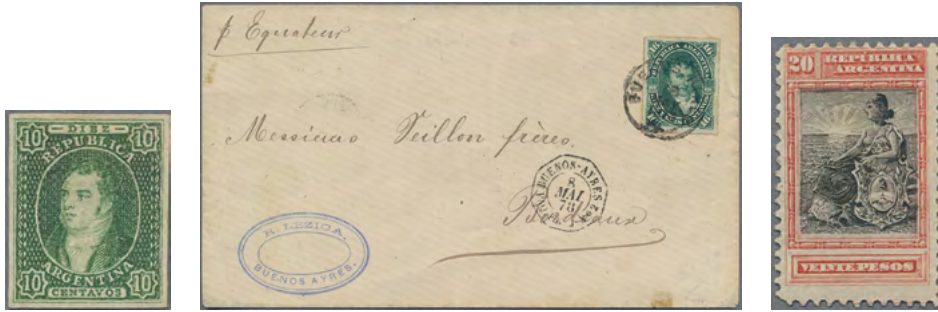 10 DIEZ 10
REPUBLICA
ARGENTINA
10 CENTAVOS 10
p Equateur
16 16
REPUBLICA ARGENTINA
16 16
BUE
Messieurs Seillon frères.
Bordeaux
BUENOS-AYRES
8
MAI
78
Nº2
R. LEZICA.
BUENOS AYRES.
20 REPÚBLICA
ARGENTINA
VEINTE PESOS